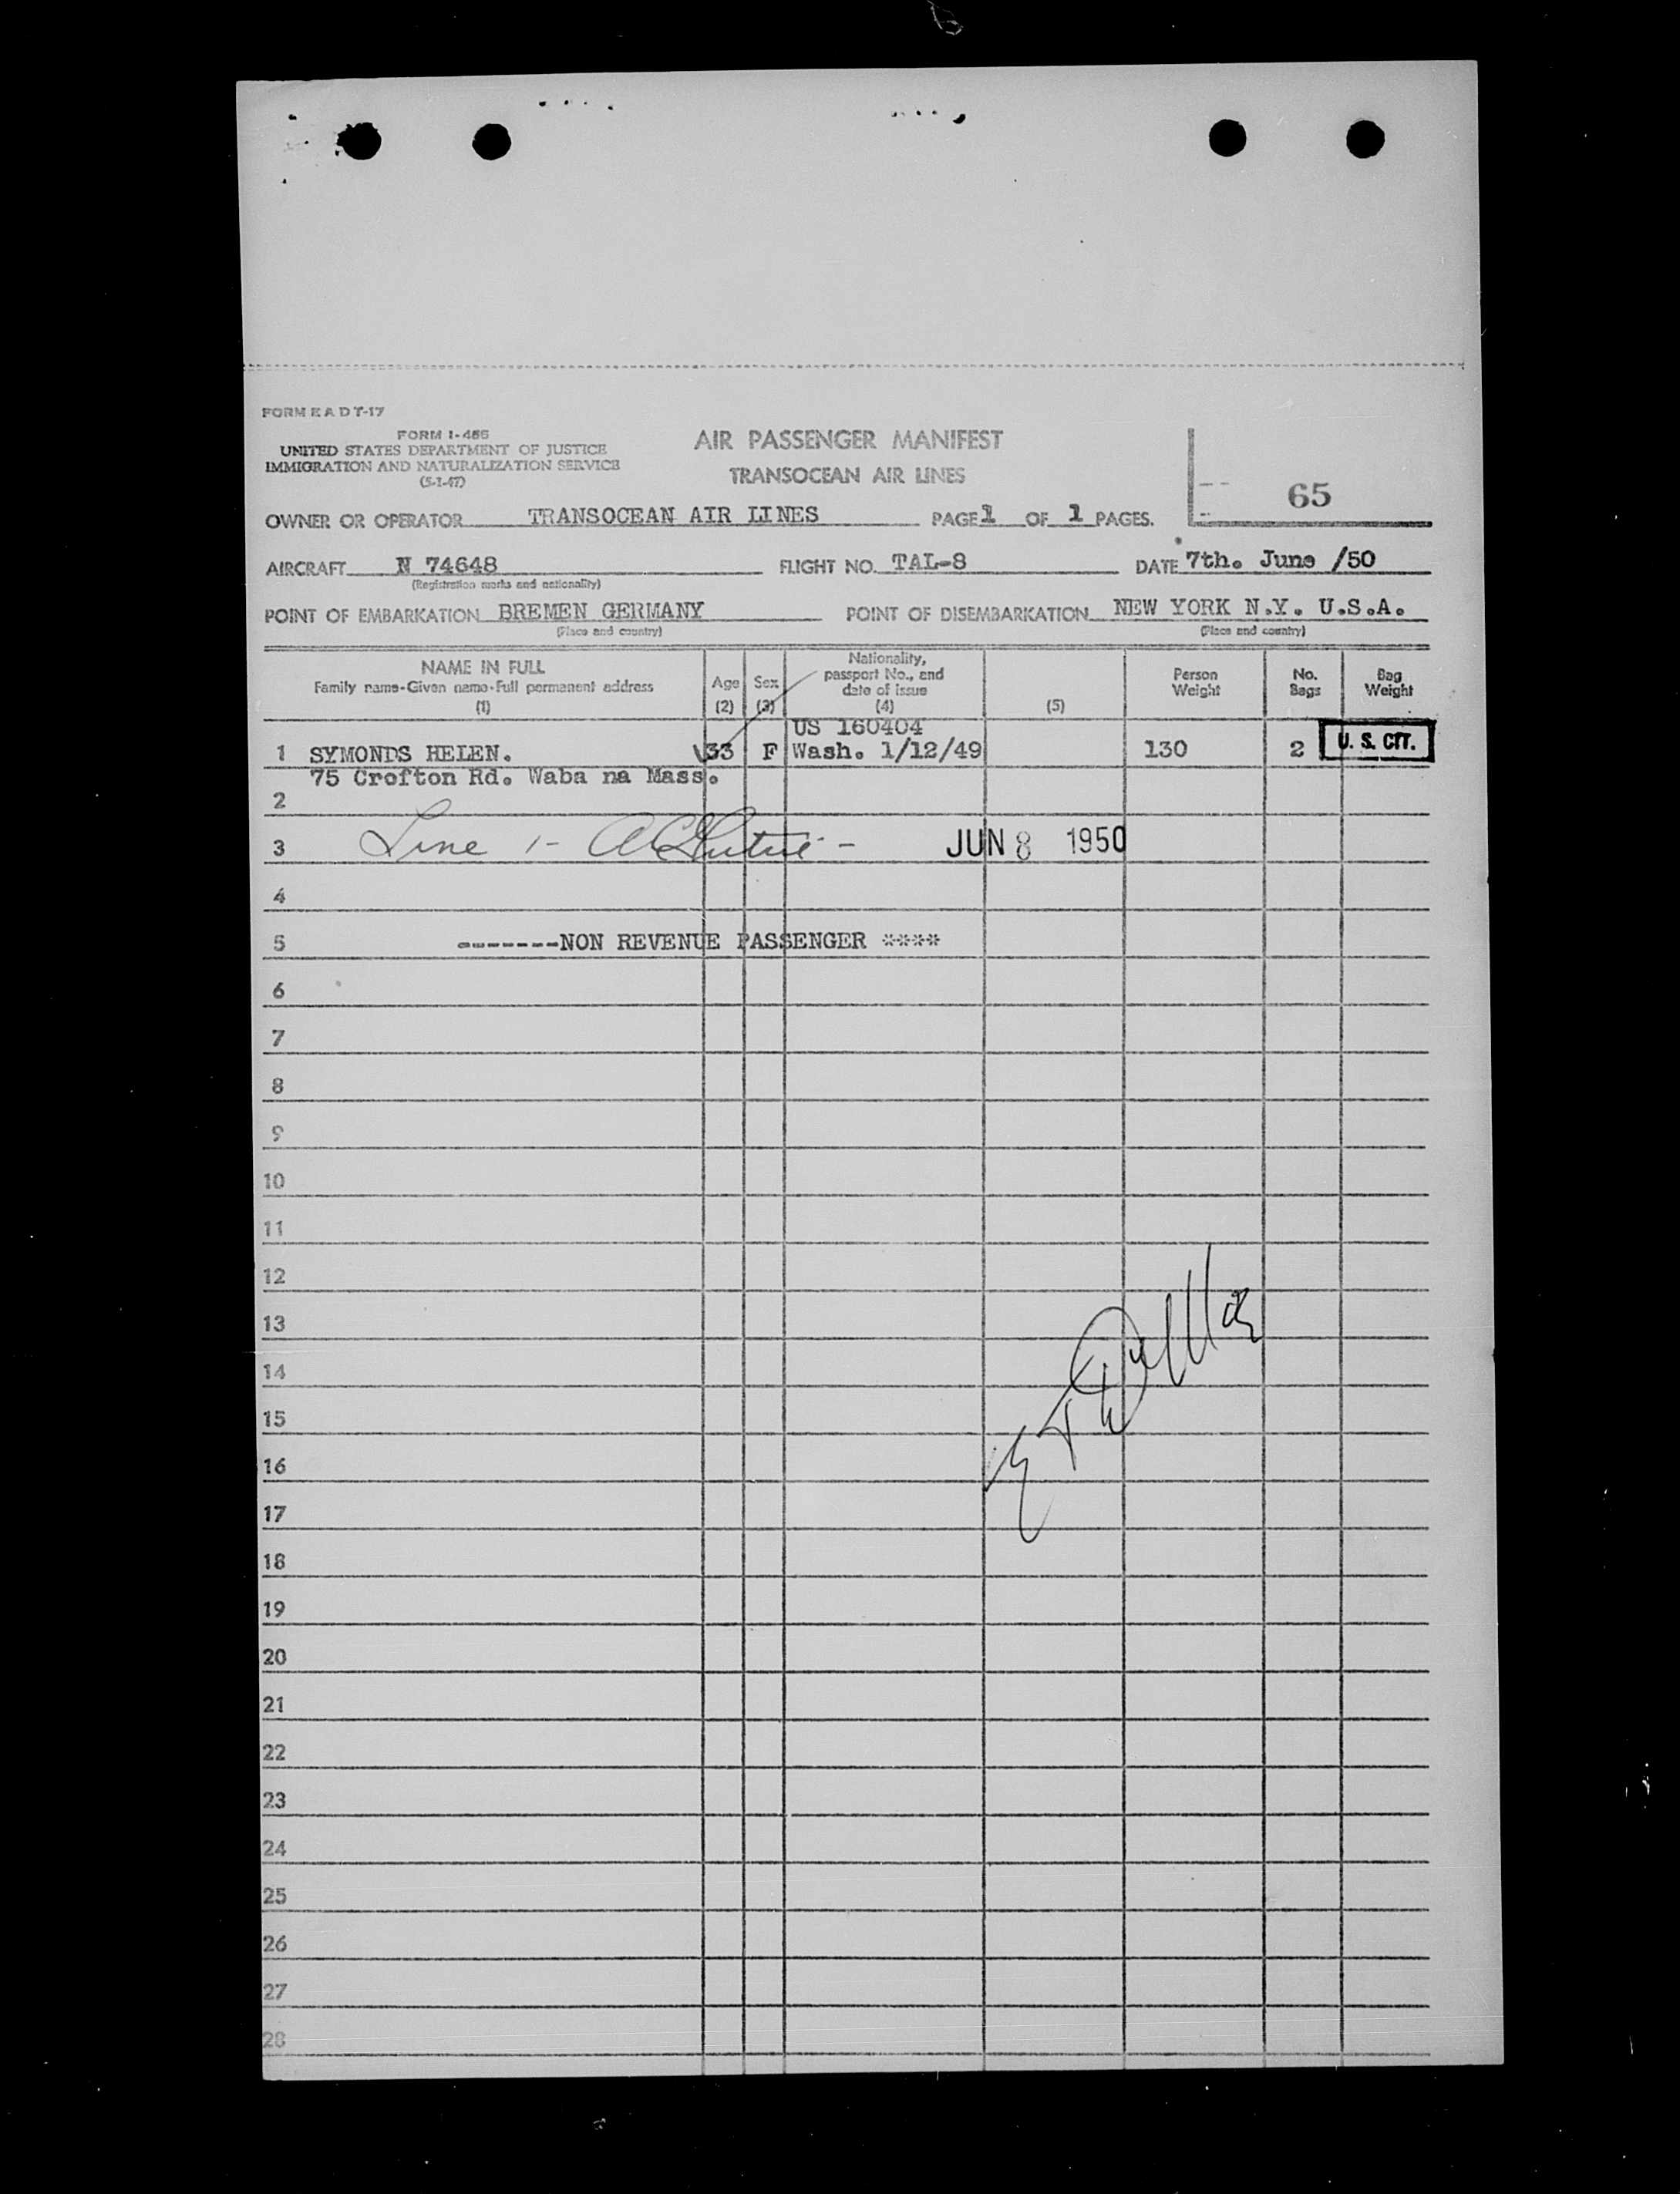 FORM E A D T-17
FORM I-466
UNITED STATES DEPARTMENT OF JUSTICE
IMMIGRATION AND NATURALIZATION SERVICE
(5-1-47)
AIR PASSENGER MANIFEST
TRANSOCEAN AIR LINES
65
OWNER OR OPERATOR TRANSOCEAN AIR LINES PAGE 1 OF 1 PAGES.
AIRCRAFT N 74648 FLIGHT NO. TAL-8 DATE 7th. June /50
(Registration marks and nationality)
POINT OF EMBARKATION BREMEN GERMANY POINT OF DISEMBARKATION NEW YORK N.Y. U.S.A.
(Place and country) (Place and country)
NAME IN FULL
Family name-Given name-Full permanent address
(1)
Age
(2)
Sex
(3)
Nationality,
passport No., and
date of issue
(4)
(5)
Person
Weight
No.
Bags
Bag
Weight
US 160404
1 SYMONDS HELEN. 33 F Wash. 1/12/49 130 2 U. S. CIT.
75 Crofton Rd. Waba na Mass.
2
3 Line 1- JUN 8 1950
4
5 -------NON REVENUE PASSENGER ****
6
7
8
9
10
11
12
13
14
15
16
17
18
19
20
21
22
23
24
25
26
27
28